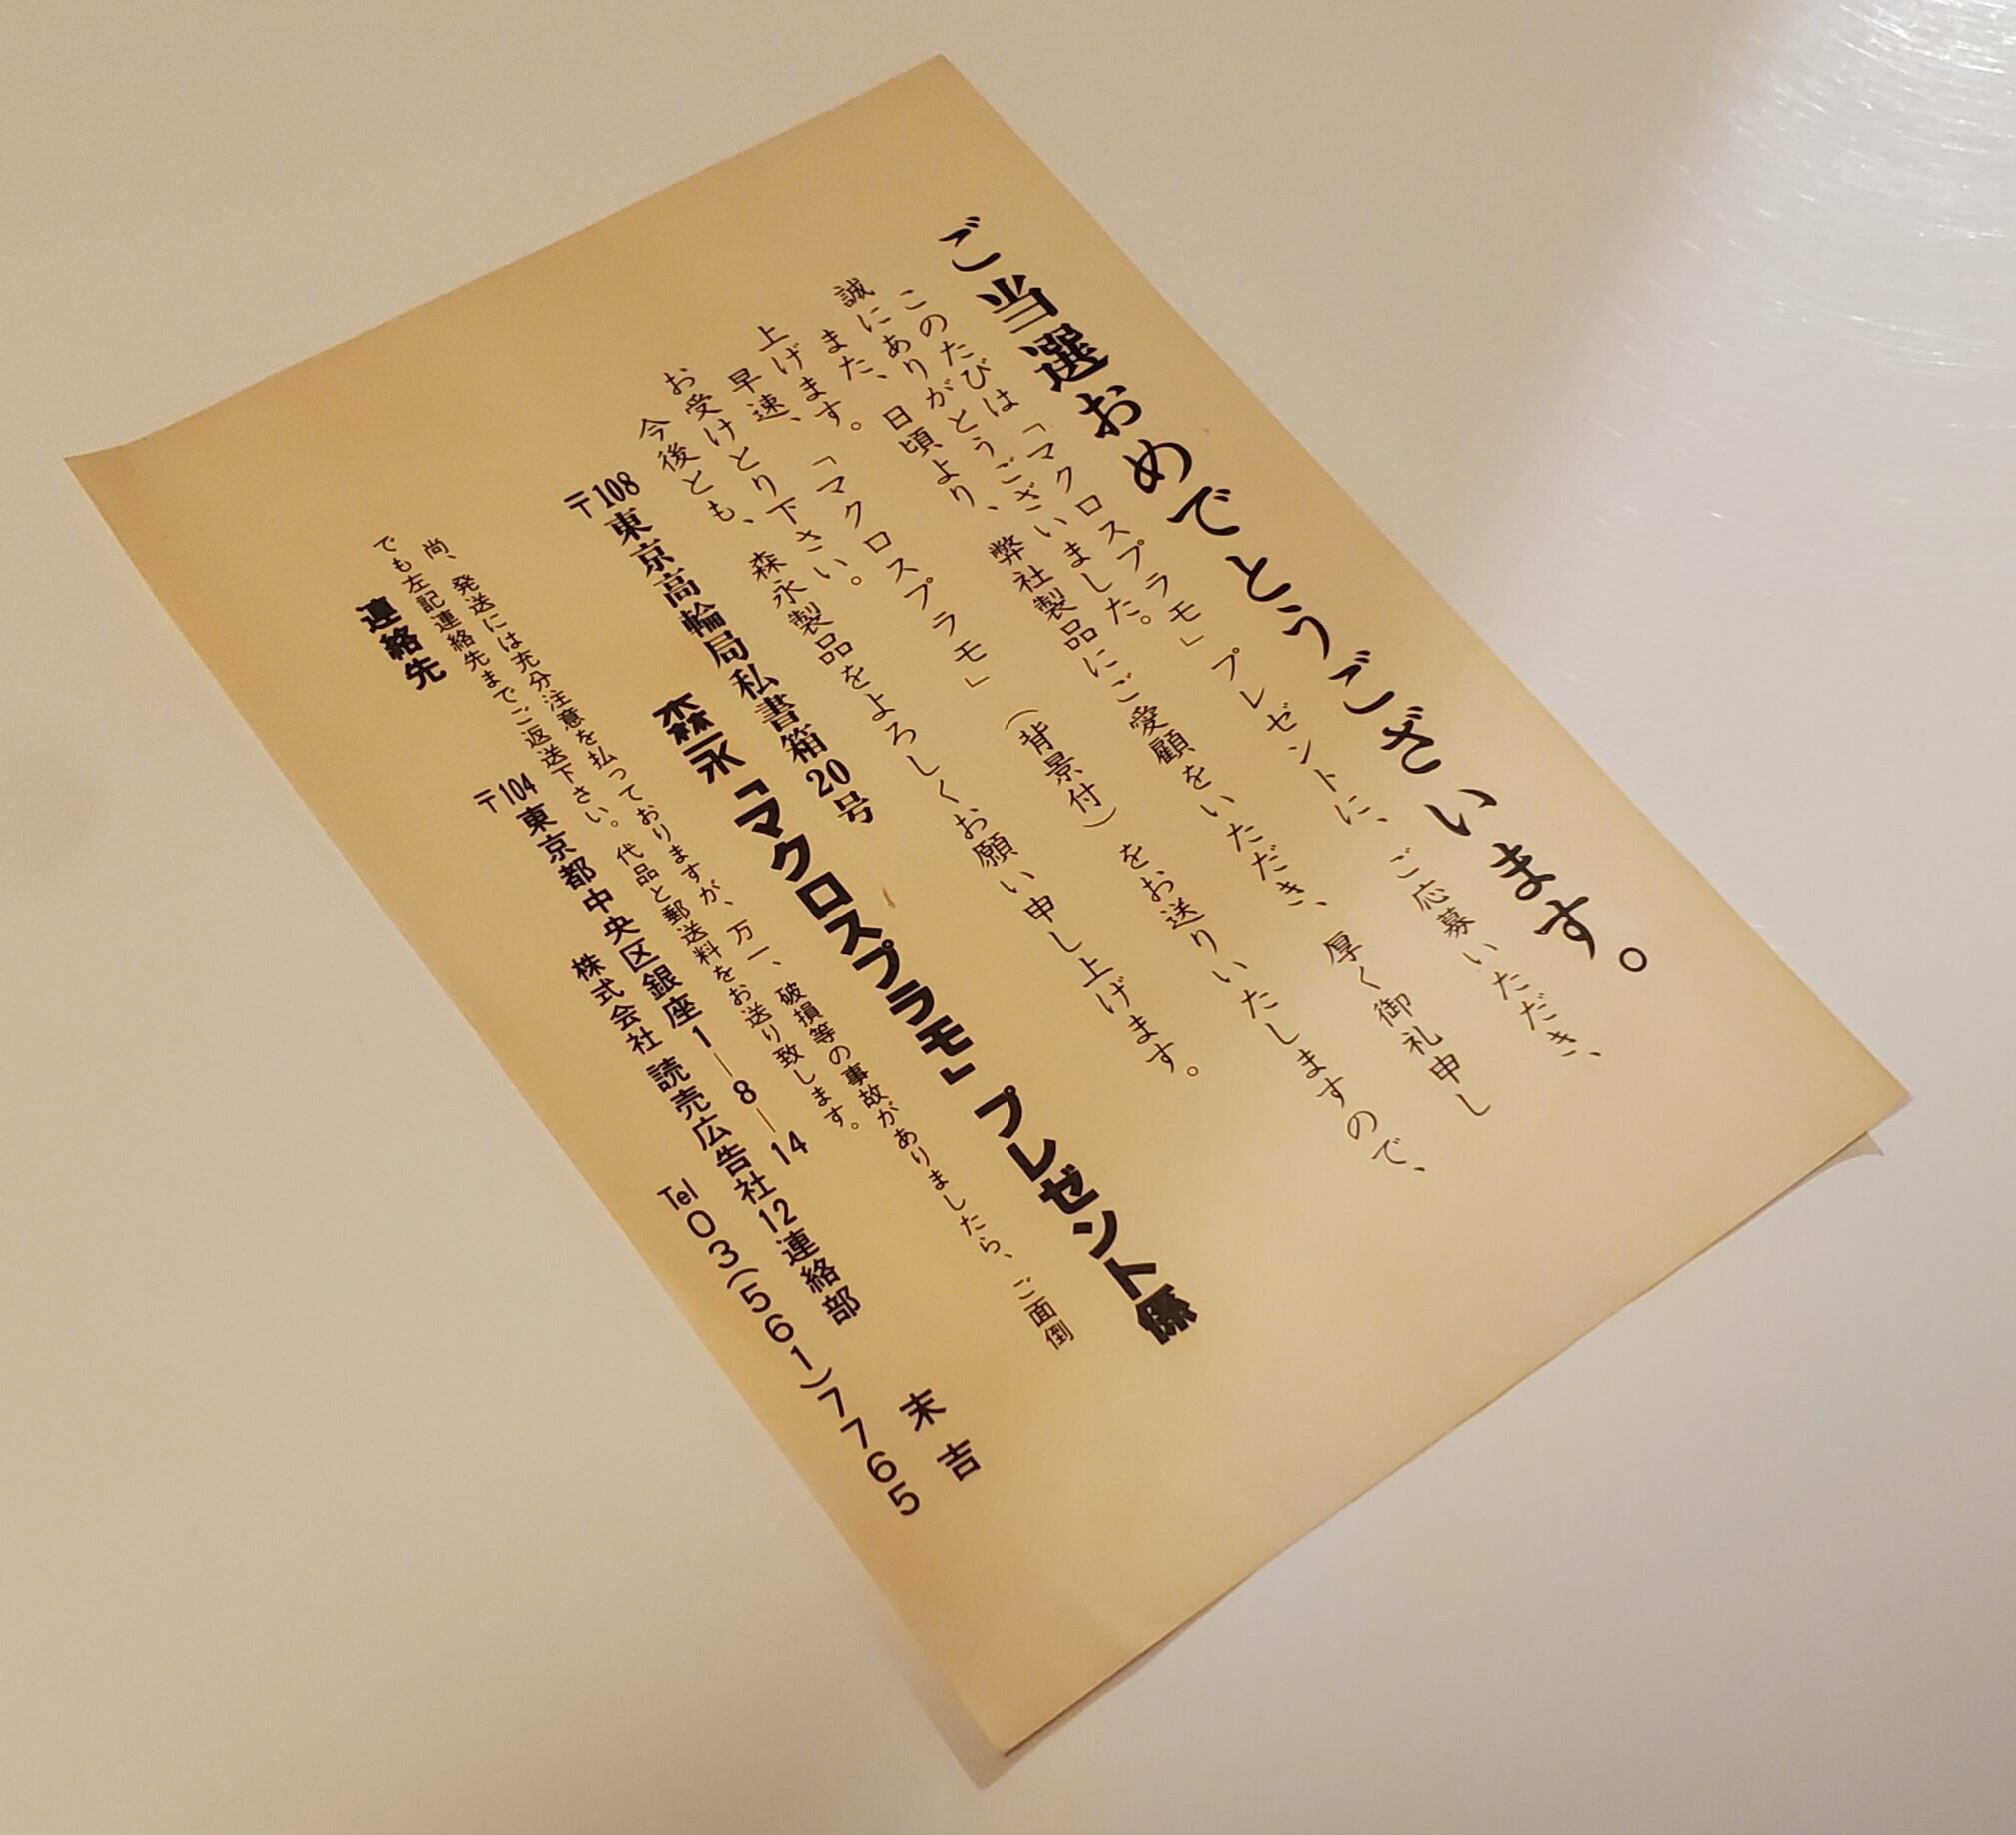 ご当選おめでとうございます。
このたびは「マクロスプラモ」プレゼントに、ご応募いただき、
誠にありがとうございました。
また、日頃より、弊社製品にご愛顧をいただき、厚く御礼申し
上げます。
早速、「マクロスプラモ」(背景付)をお送りいたしますので、
お受けとり下さい。
今後とも、森永製品をよろしくお願い申し上げます。
〒108東京高輪局私書箱20号
森永「マクロスプラモ」プレゼント係
尚、発送には充分注意を払っておりますが、万一、破損等の事故がありましたら、ご面倒
でも左記連絡先までご返送下さい。代品と郵送料をお送り致します。
連絡先
〒104東京都中央区銀座1—8—14
株式会社 読売広告社12連絡部
末吉
Tel 03(561)7765